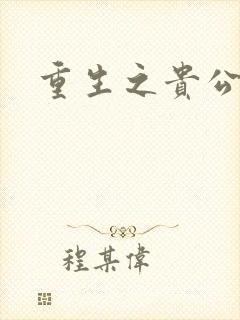 重生之貴公
程某偉